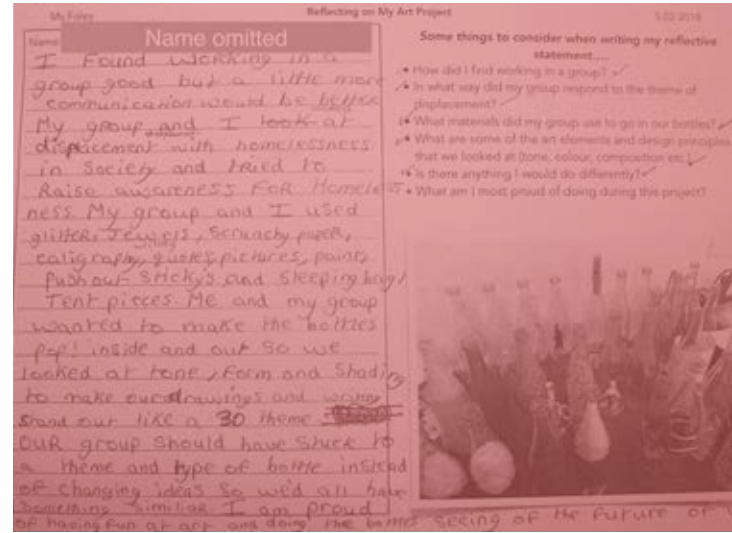 Ms Foley
Reflecting on My Art Project
5.02.2018
Name
Name omitted
I Found working in a
group good but a little more
communication would be better
My group and I look at
displacement with homelessness
in Society and tried to
Raise awareness FOR Homeless
ness. My group and I used
glitter, Jewels, Scrunchy paper,
caligraphy, quotes, pictures, paint,
Push out Sticky's and Sleeping bag/
Tent pieces. Me and my group
wanted to make the bottles
pop! inside and out so we
looked at tone, Form and Shading
to make our drawings and
stand out like a 3D theme
OUR group Should have Stuck to
a theme and type of bottle instead
of changing ideas So we'd all have
Something similiar I am proud
of having fun at art and doing the bottles seeing of the Future of
Some things to consider when writing my reflective
statement....
• How did I find working in a group?
• In what way did my group respond to the theme of
displacement?
• What materials did my group use to go in our bottles?
• What are some of the art elements and design principles
that we looked at (tone, colour, composition etc)
• Is there anything I would do differently?
• What am I most proud of doing during this project?